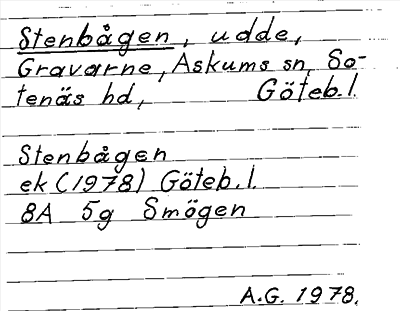 Stenbågen, udde,
Gravarne, Askums sn, So-
tenäs hd, Göteb.l.
Stenbågen
ek (1978) Göteb.l.
8A 5g Smögen
A.G. 1978.